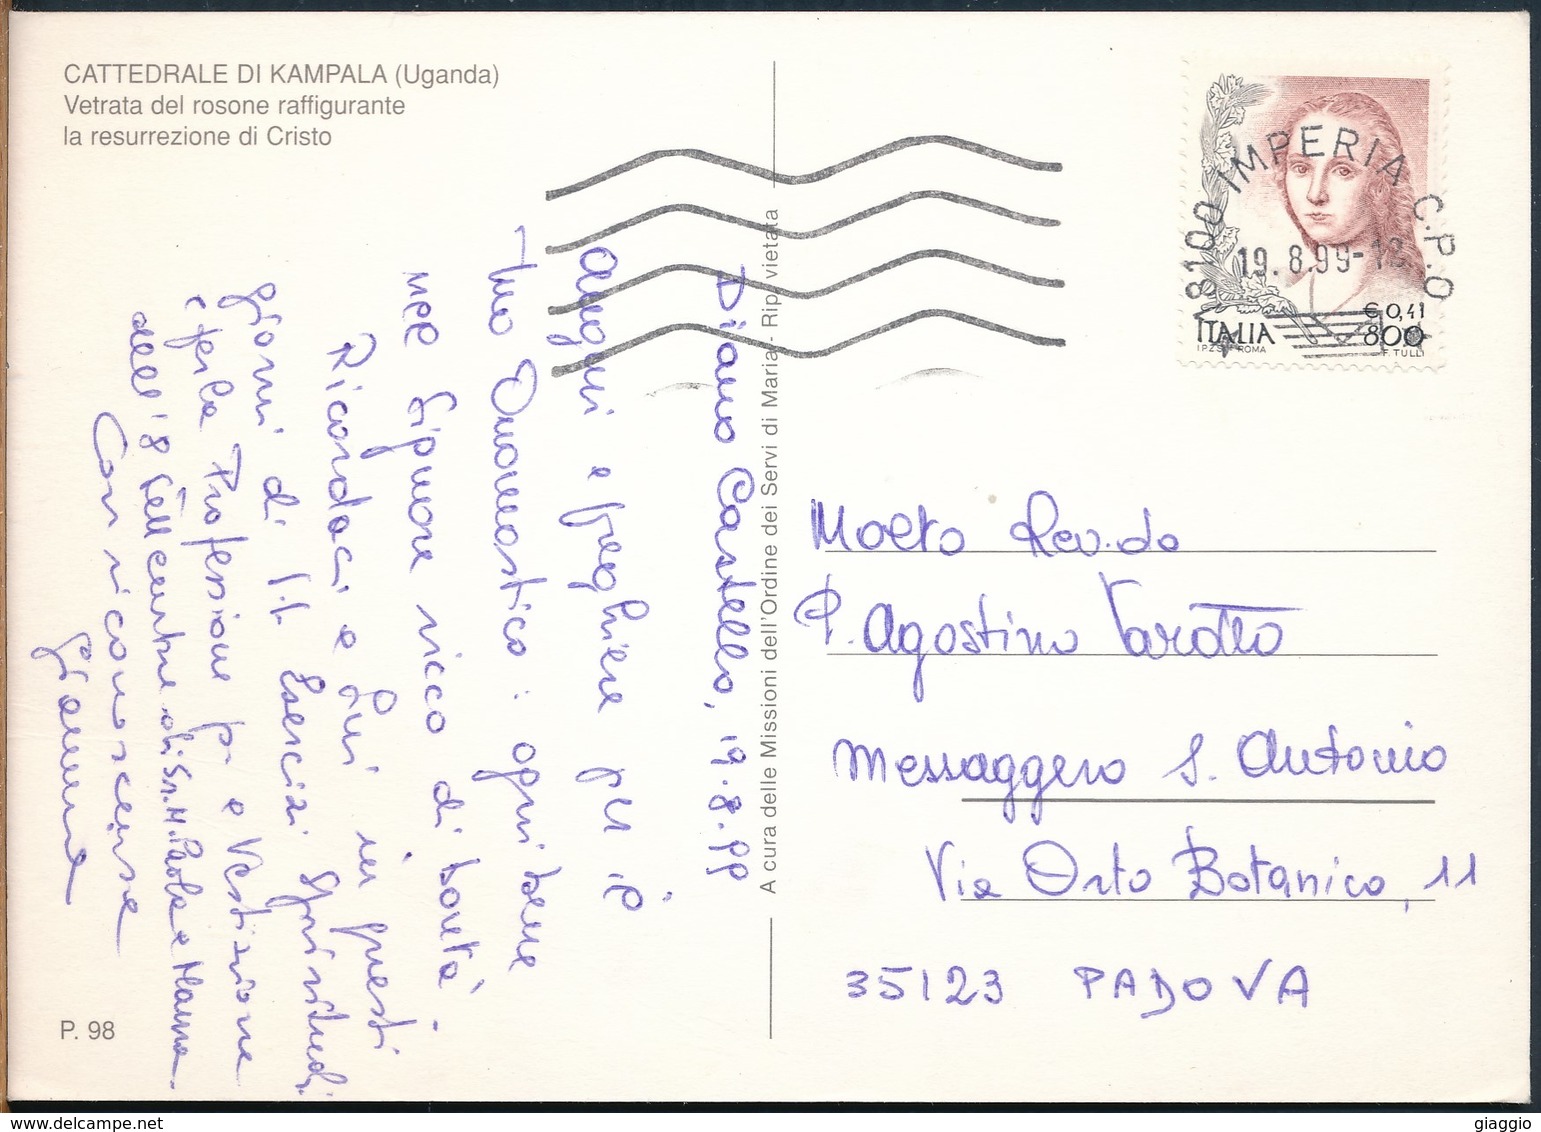 CATTEDRALE DI KAMPALA (Uganda)
Vetrata del rosone raffigurante
la resurrezione di Cristo
Diano Castello, 19.8.99
Auguri e preghiere per il
tuo Onomastico: ogni bene
nel Signore ricco di bontà.
Ricordaci e Gesù in questi
giorni di Esercizi Spirituali
e per la Professione e Vestizione
dell'8 Sett. di Sr. M. Paola e
Con riconoscenza
P. 98
A cura delle Missioni dell'Ordine dei Servi di Maria - Rip. vietata
18100 IMPERIA C.P.O
19.8.99-
€ 0,41
ITALIA 800
I.P.Z.S. ROMA F. TULLI
Molto Rev.do
P. Agostino Varotto
Messaggero S. Antonio
Via Orto Botanico, 11
35123 PADOVA
giaggio